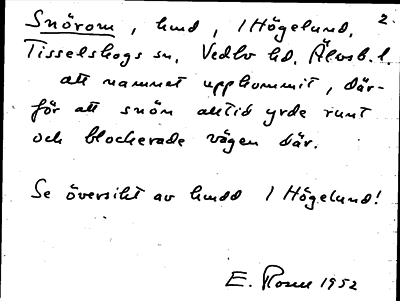 2.
Snörom, hmd, 1 Högelund,
Tisselskogs sn, Vedbo hd, Älvsb. l.
att namnet uppkommit, där-
för att snön alltid yrde runt
och blockerade vägen där.
Se översikt av hmdd 1 Högelund!
E. Rosell 1952